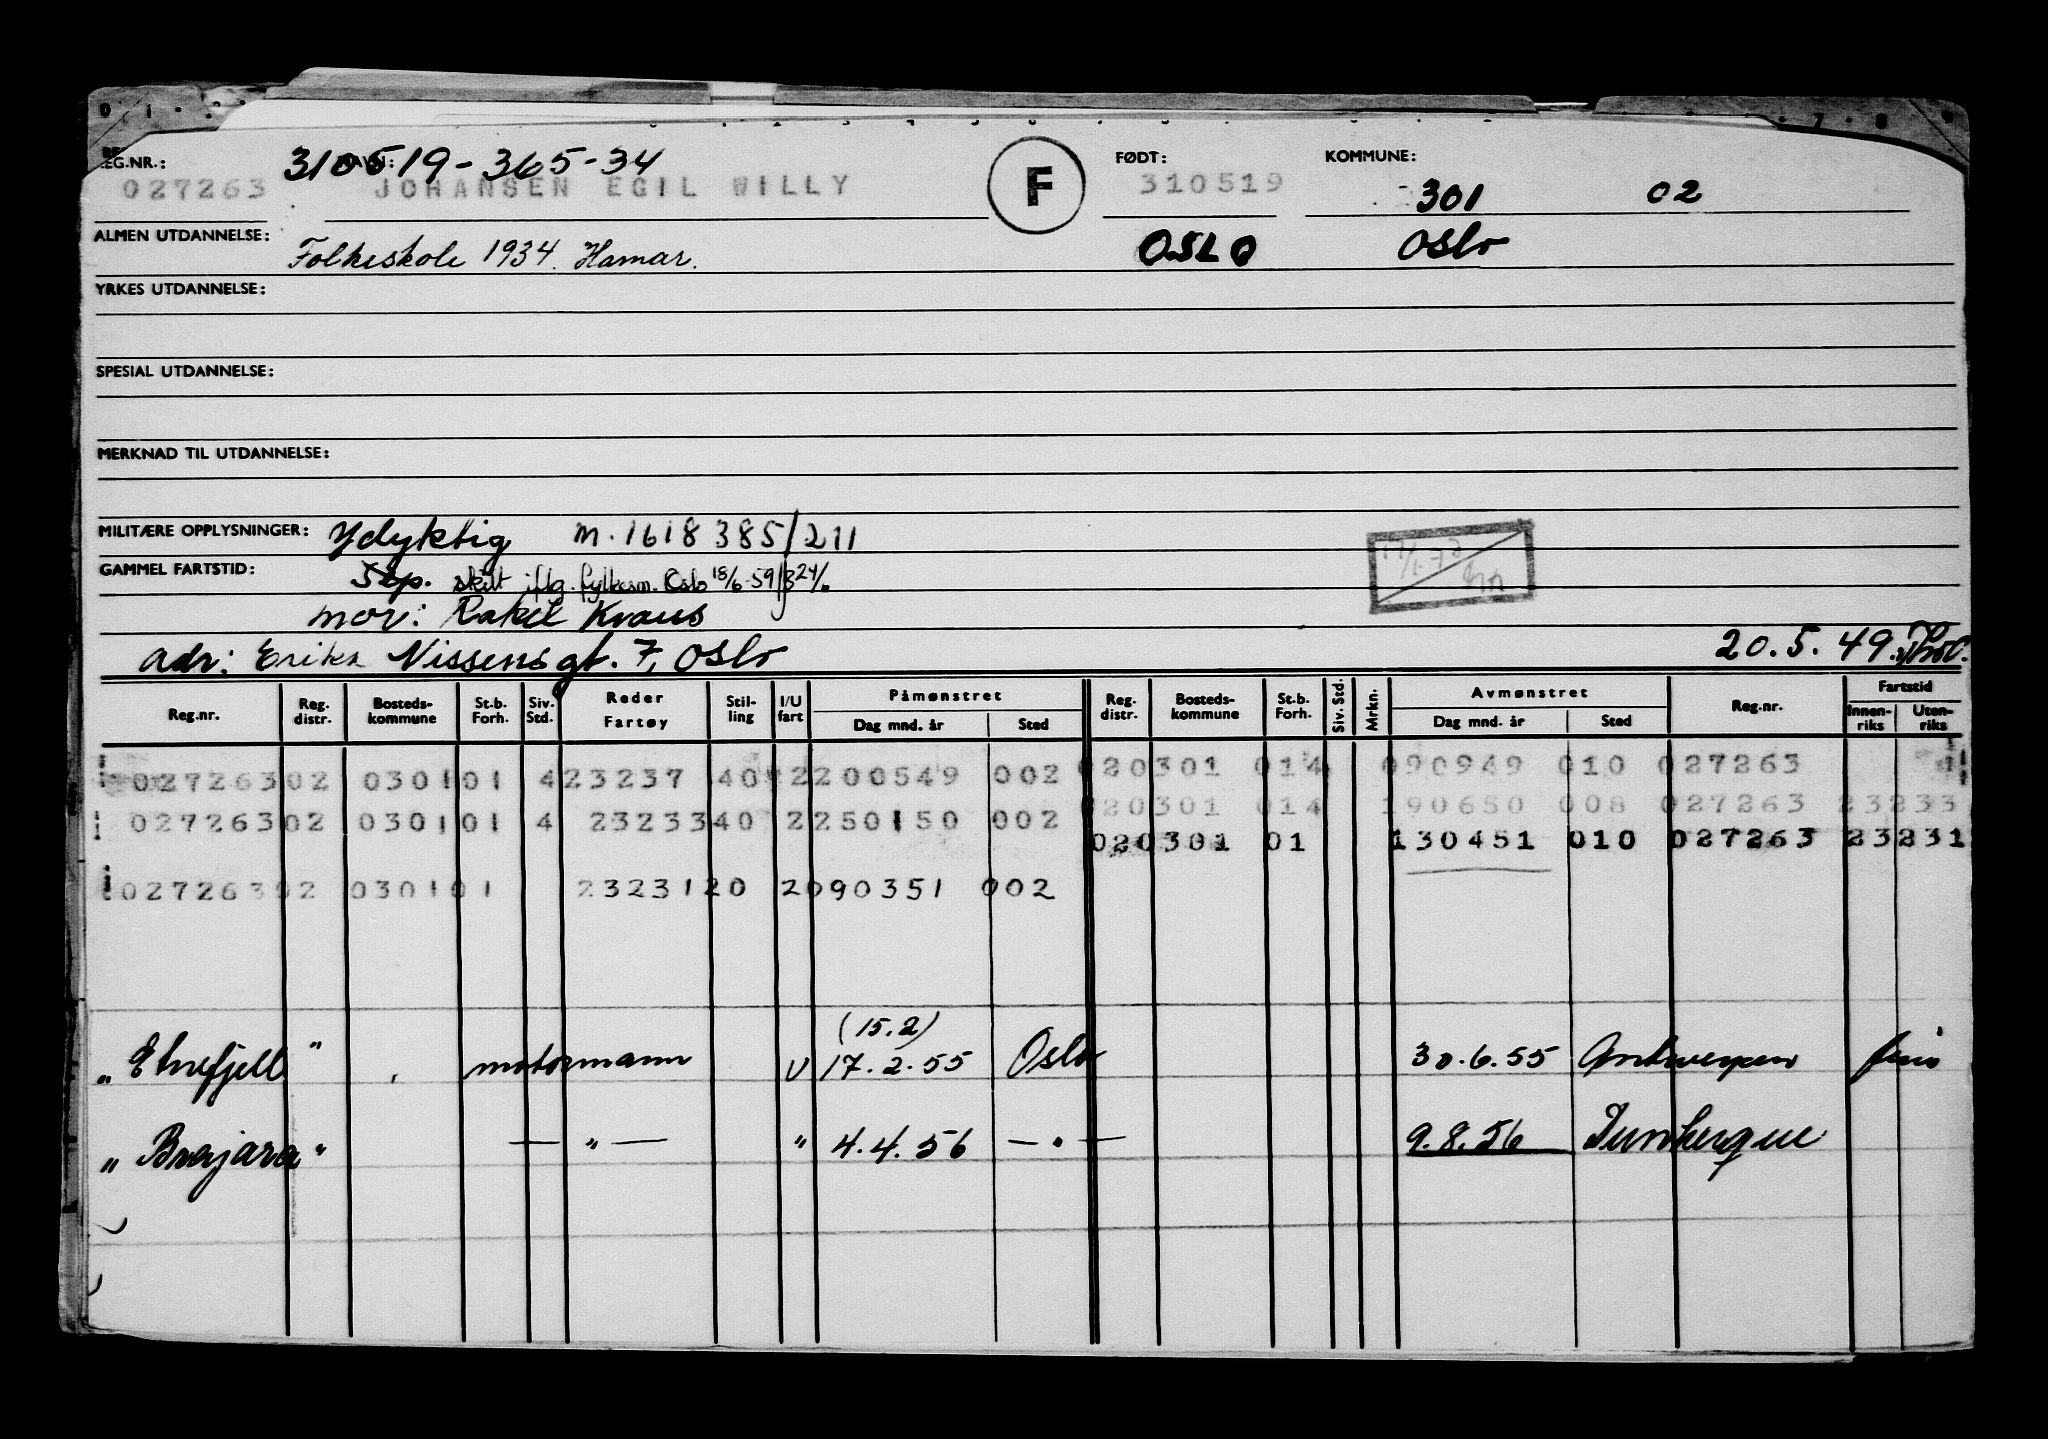 REG.NR.: 310519-365-34 NAVN: FØDT: KOMMUNE:
027263 JOHANSEN EGIL WILLY F 310519 301 02
ALMEN UTDANNELSE: Folkeskole 1934. Hamar. OSLO Oslo
YRKES UTDANNELSE:
SPESIAL UTDANNELSE:
MERKNAD TIL UTDANNELSE:
MILITÆRE OPPLYSNINGER: Udyktig m. 1618 385/211
GAMMEL FARTSTID: Sep. skilt iflg. fylkesm. Oslo 18/6-59 24/6
mor: Rakel Kraus
adr: Erika Nissensgt. 7, Oslo 20.5.49.
Reg.nr. Reg. distr. Bosteds-kommune St.b. Forh. Siv. Std. Reder Fartøy Stil-ling I/U fart Påmønstret Dag mnd. år Sted Reg. distr. Bosteds-kommune St.b. Forh. Siv. Std. Mrkn. Avmønstret Dag mnd. år Sted Reg.nr. Fartstid Innen-riks Uten-riks
027263 02 0301 01 4 23237 40 2 200549 002 020301 014 090949 010 027263
020301 014 190650 008 027263 23233
027263 02 0301 01 4 23233 40 2 250150 002
020301 01 130451 010 027263 23231
027263 02 0301 01 23231 20 2 090351 002
(15.2)
"Etnefjell" motormann U 17.2.55 Oslo 30.6.55 Antwerpen
"Brajara" — " — " 4.4.56 — " — 9.8.56 Dunkerque